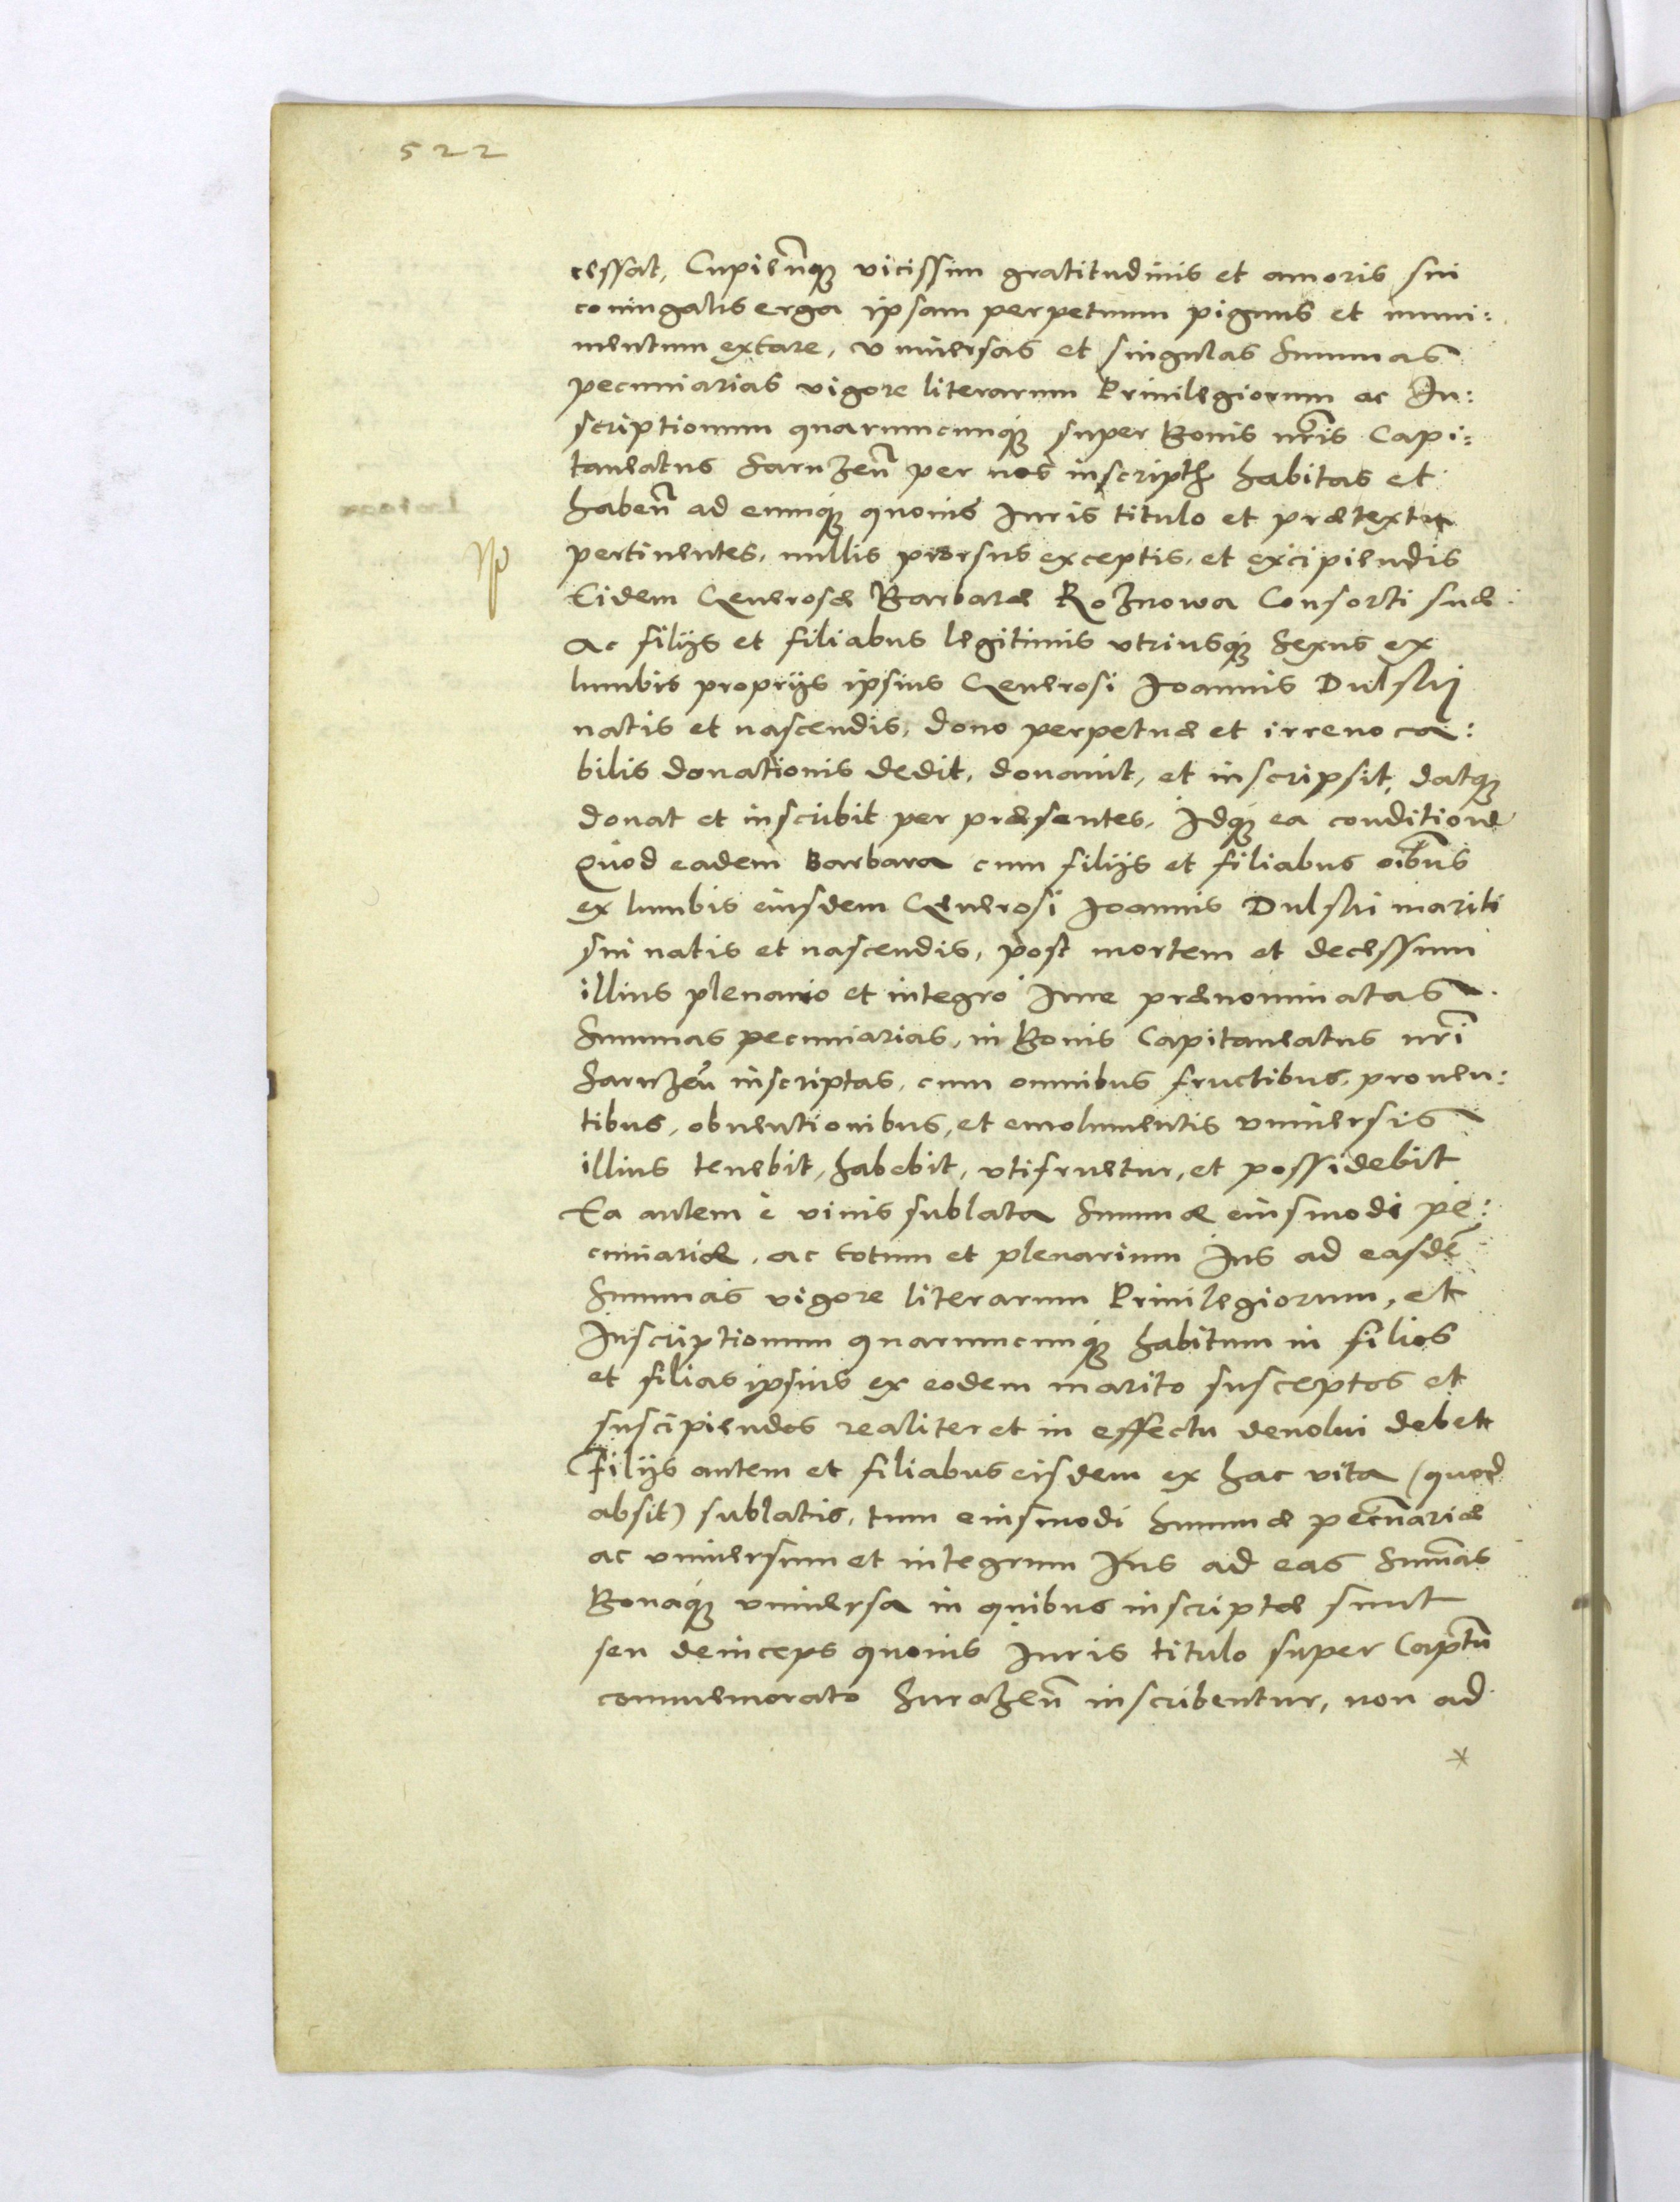 522
cessat, Cupienq̃ue vicissim gratitudinis et amoris sui
coniugalis erga ipsam perpetuum pignus et muni:
mentum extare, vniuersas et singulas Summas
pecuniarias vigore literarum Priuilegiorum ac In:
scriptionum quarumcunque super Bonis nr̃is Capi:
taneatus per nos habitas et
haben̄ ad eumque quouis Iuris titulo et prætextu
pertinentes, nullis prorsus exceptis, et excipiendis
Eidem Generosæ Barbaræ Roznowa Consorti suæ
Ac filijs et filiabus legitimis vtriusque Sexus ex
lumbis proprijs ipsius Generosi Joannis Dulskij
natis et nascendis, dono perpetuæ et irreuoca:
bilis donationis dedit, donauit, et inscripsit, datque
donat et inscribit per præsentes, Idque ea conditione
Quod eadem Barbara cum filijs et filiabus oĩbus
ex lumbis eiusdem Generosi Joannis Dulski mariti
sui natis et nascendis, post mortem et decessum
illius plenario et integro Iure prænominatas
Summas pecuniarias, in Bonis Capitaneatus nr̃i
inscriptas, cum omnibus fructibus, prouen:
tibus, obuentionibus, et emolumentis vniuersis
illius tenebit, habebit, vtifruetur, et possidebit
Ea autem è viuis sublata Summæ eiusmodi pe:
cuniariæ, ac totum et plenarium Ius ad easdē
Summas vigore literarum Priuilegiorum, et
Inscriptionum quarumcunque habitum in filios
et filias ipsius ex eodem marito susceptos et
suscipiendos realiter et in effectu deuolui debet
Filijs autem et filiabus eisdem ex hac vita (quod
absit) sublatis, tum eiusmodi Summæ pecūnariæ
ac vniuersum et integrum Ius ad eas Sum̄as
Bonaque vniuersa in quibus inscriptæ sunt
seu deinceps quouis Iuris titulo super Captũ
commemorato inscribentur, non ad